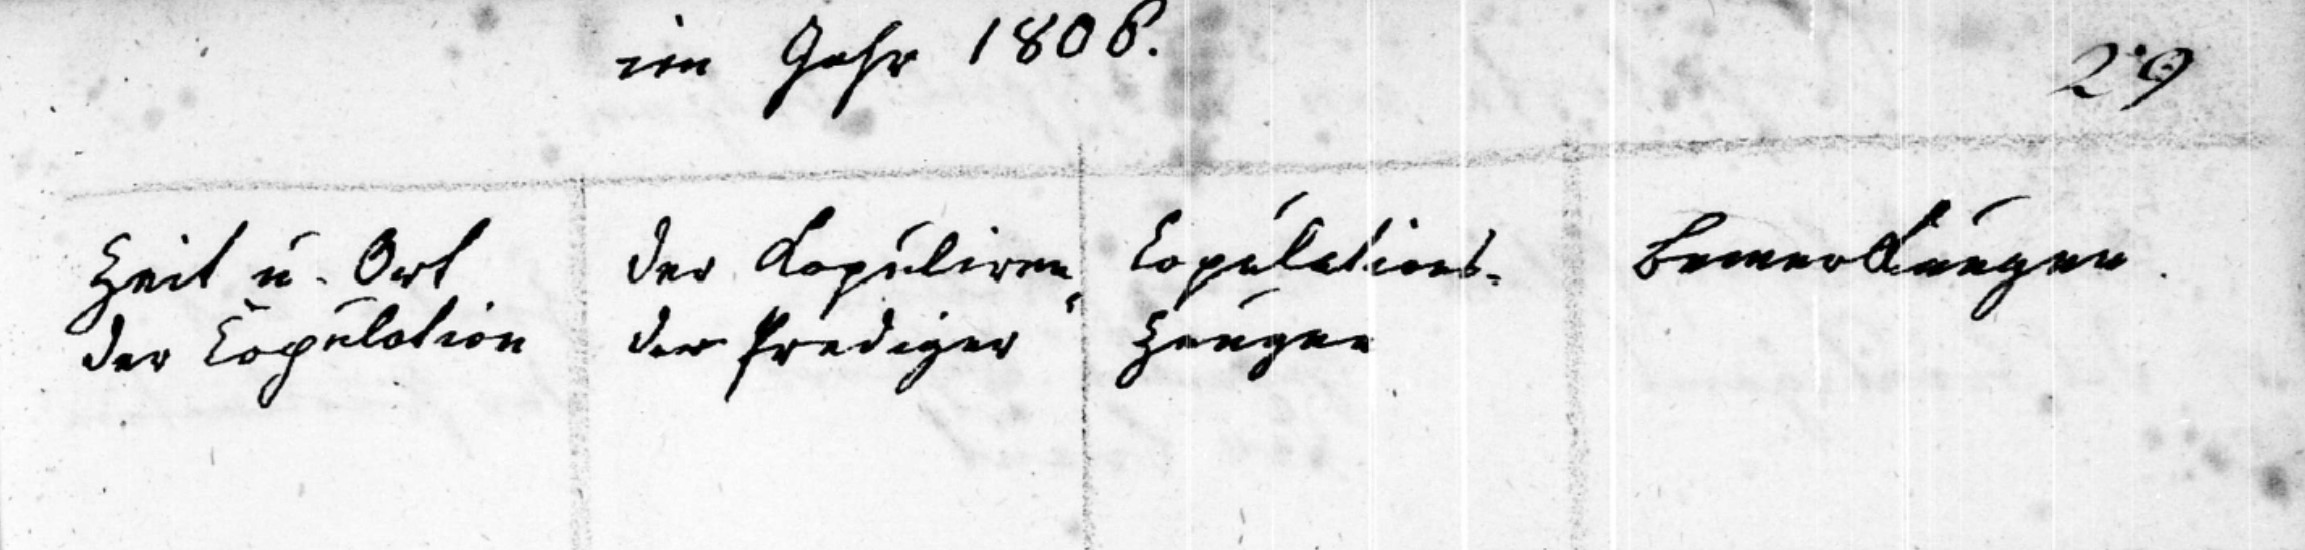 im Jahr 1808.
29
Zeit u. Ort
der Copulation
der Kopuliren„
der Prediger
Copulations-
Zeugen
Bemerkungen.